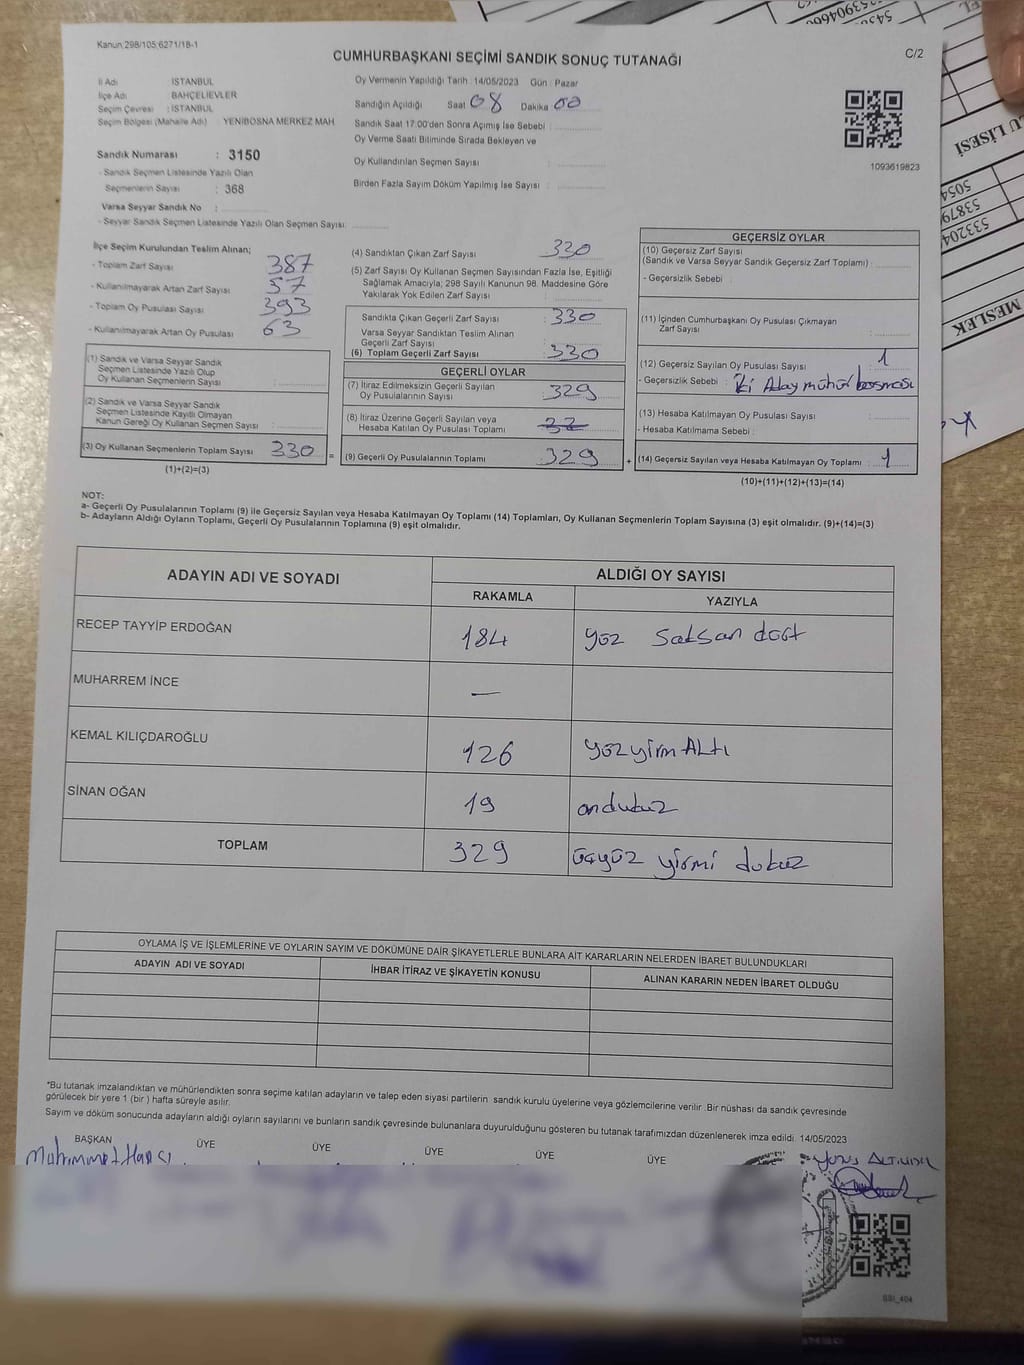 Kanun 298/105;6271/18-1
CUMHURBAŞKANI SEÇİMİ SANDIK SONUÇ TUTANAĞI
C/2
İl Adı : İSTANBUL
İlçe Adı : BAHÇELİEVLER
Seçim Çevresi : İSTANBUL
Seçim Bölgesi (Mahalle Adı) : YENİBOSNA MERKEZ MAH.
Sandık Numarası : 3150
- Sandık Seçmen Listesinde Yazılı Olan
Seçmenlerin Sayısı : 368
Varsa Seyyar Sandık No :
- Seyyar Sandık Seçmen Listesinde Yazılı Olan Seçmen Sayısı:
Oy Vermenin Yapıldığı Tarih : 14/05/2023 Gün : Pazar
Sandığın Açıldığı Saat 08 Dakika 00
Sandık Saat 17:00'den Sonra Açımış İse Sebebi :
Oy Verme Saati Bitiminde Sırada Bekleyen ve
Oy Kullandırılan Seçmen Sayısı :
Birden Fazla Sayım Döküm Yapılmış İse Sayısı :
1093619823
İlçe Seçim Kurulundan Teslim Alınan;
- Toplam Zarf Sayısı : 387
- Kullanılmayarak Artan Zarf Sayısı : 57
- Toplam Oy Pusulası Sayısı : 393
- Kullanılmayarak Artan Oy Pusulası : 63
(1) Sandık ve Varsa Seyyar Sandık
Seçmen Listesinde Yazılı Olup
Oy Kullanan Seçmenlerin Sayısı :
(2) Sandık ve Varsa Seyyar Sandık
Seçmen Listelerinde Kayıtlı Olmayan
Kanun Gereği Oy Kullanan Seçmen Sayısı :
(3) Oy Kullanan Seçmenlerin Toplam Sayısı : 330
(1)+(2)=(3)
(4) Sandıktan Çıkan Zarf Sayısı : 330
(5) Zarf Sayısı Oy Kullanan Seçmen Sayısından Fazla İse, Eşitliği
Sağlamak Amacıyla; 298 Sayılı Kanunun 98. Maddesine Göre
Yakılarak Yok Edilen Zarf Sayısı :
Sandıkta Çıkan Geçerli Zarf Sayısı : 330
Varsa Seyyar Sandıktan Teslim Alınan
Geçerli Zarf Sayısı :
(6) Toplam Geçerli Zarf Sayısı : 330
GEÇERLİ OYLAR
(7) İtiraz Edilmeksizin Geçerli Sayılan
Oy Pusulalarının Sayısı : 329
(8) İtiraz Üzerine Geçerli Sayılan veya
Hesaba Katılan Oy Pusulası Toplamı :
= (9) Geçerli Oy Pusulalarının Toplamı : 329
GEÇERSİZ OYLAR
(10) Geçersiz Zarf Sayısı
(Sandık ve Varsa Seyyar Sandık Geçersiz Zarf Toplamı) :
- Geçersizlik Sebebi :
(11) İçinden Cumhurbaşkanı Oy Pusulası Çıkmayan
Zarf Sayısı :
(12) Geçersiz Sayılan Oy Pusulası Sayısı : 1
- Geçersizlik Sebebi : İki Aday mühür basması
(13) Hesaba Katılmayan Oy Pusulası Sayısı :
- Hesaba Katılmama Sebebi :
+ (14) Geçersiz Sayılan veya Hesaba Katılmayan Oy Toplamı : 1
(10)+(11)+(12)+(13)=(14)
NOT:
a- Geçerli Oy Pusulalarının Toplamı (9) ile Geçersiz Sayılan veya Hesaba Katılmayan Oy Toplamı (14) Toplamları, Oy Kullanan Seçmenlerin Toplam Sayısına (3) eşit olmalıdır. (9)+(14)=(3)
b- Adayların Aldığı Oyların Toplamı, Geçerli Oy Pusulalarının Toplamına (9) eşit olmalıdır.
ADAYIN ADI VE SOYADI
ALDIĞI OY SAYISI
RAKAMLA YAZIYLA
RECEP TAYYİP ERDOĞAN 184 yüz seksan dört
MUHARREM İNCE —
KEMAL KILIÇDAROĞLU 126 yüzyirm Altı
SİNAN OĞAN 19 ondukuz
TOPLAM 329 üçyüz yirmi dokuz
OYLAMA İŞ VE İŞLEMLERİNE VE OYLARIN SAYIM VE DÖKÜMÜNE DAİR ŞİKAYETLERLE BUNLARA AİT KARARLARIN NELERDEN İBARET BULUNDUKLARI
ADAYIN ADI VE SOYADI İHBAR İTİRAZ VE ŞİKAYETİN KONUSU ALINAN KARARIN NEDEN İBARET OLDUĞU
*Bu tutanak imzalandıktan ve mühürlendikten sonra seçime katılan adayların ve talep eden siyasi partilerin sandık kurulu üyelerine veya gözlemcilerine verilir. Bir nüshası da sandık çevresinde
görülecek bir yere 1 (bir ) hafta süreyle asılır.
Sayım ve döküm sonucunda adayların aldığı oyların sayılarını ve bunların sandık çevresinde bulunanlara duyurulduğunu gösteren bu tutanak tarafımızdan düzenlenerek imza edildi. 14/05/2023
BAŞKAN ÜYE ÜYE ÜYE ÜYE ÜYE
SSI_404
U LİSESİ
MESLEK